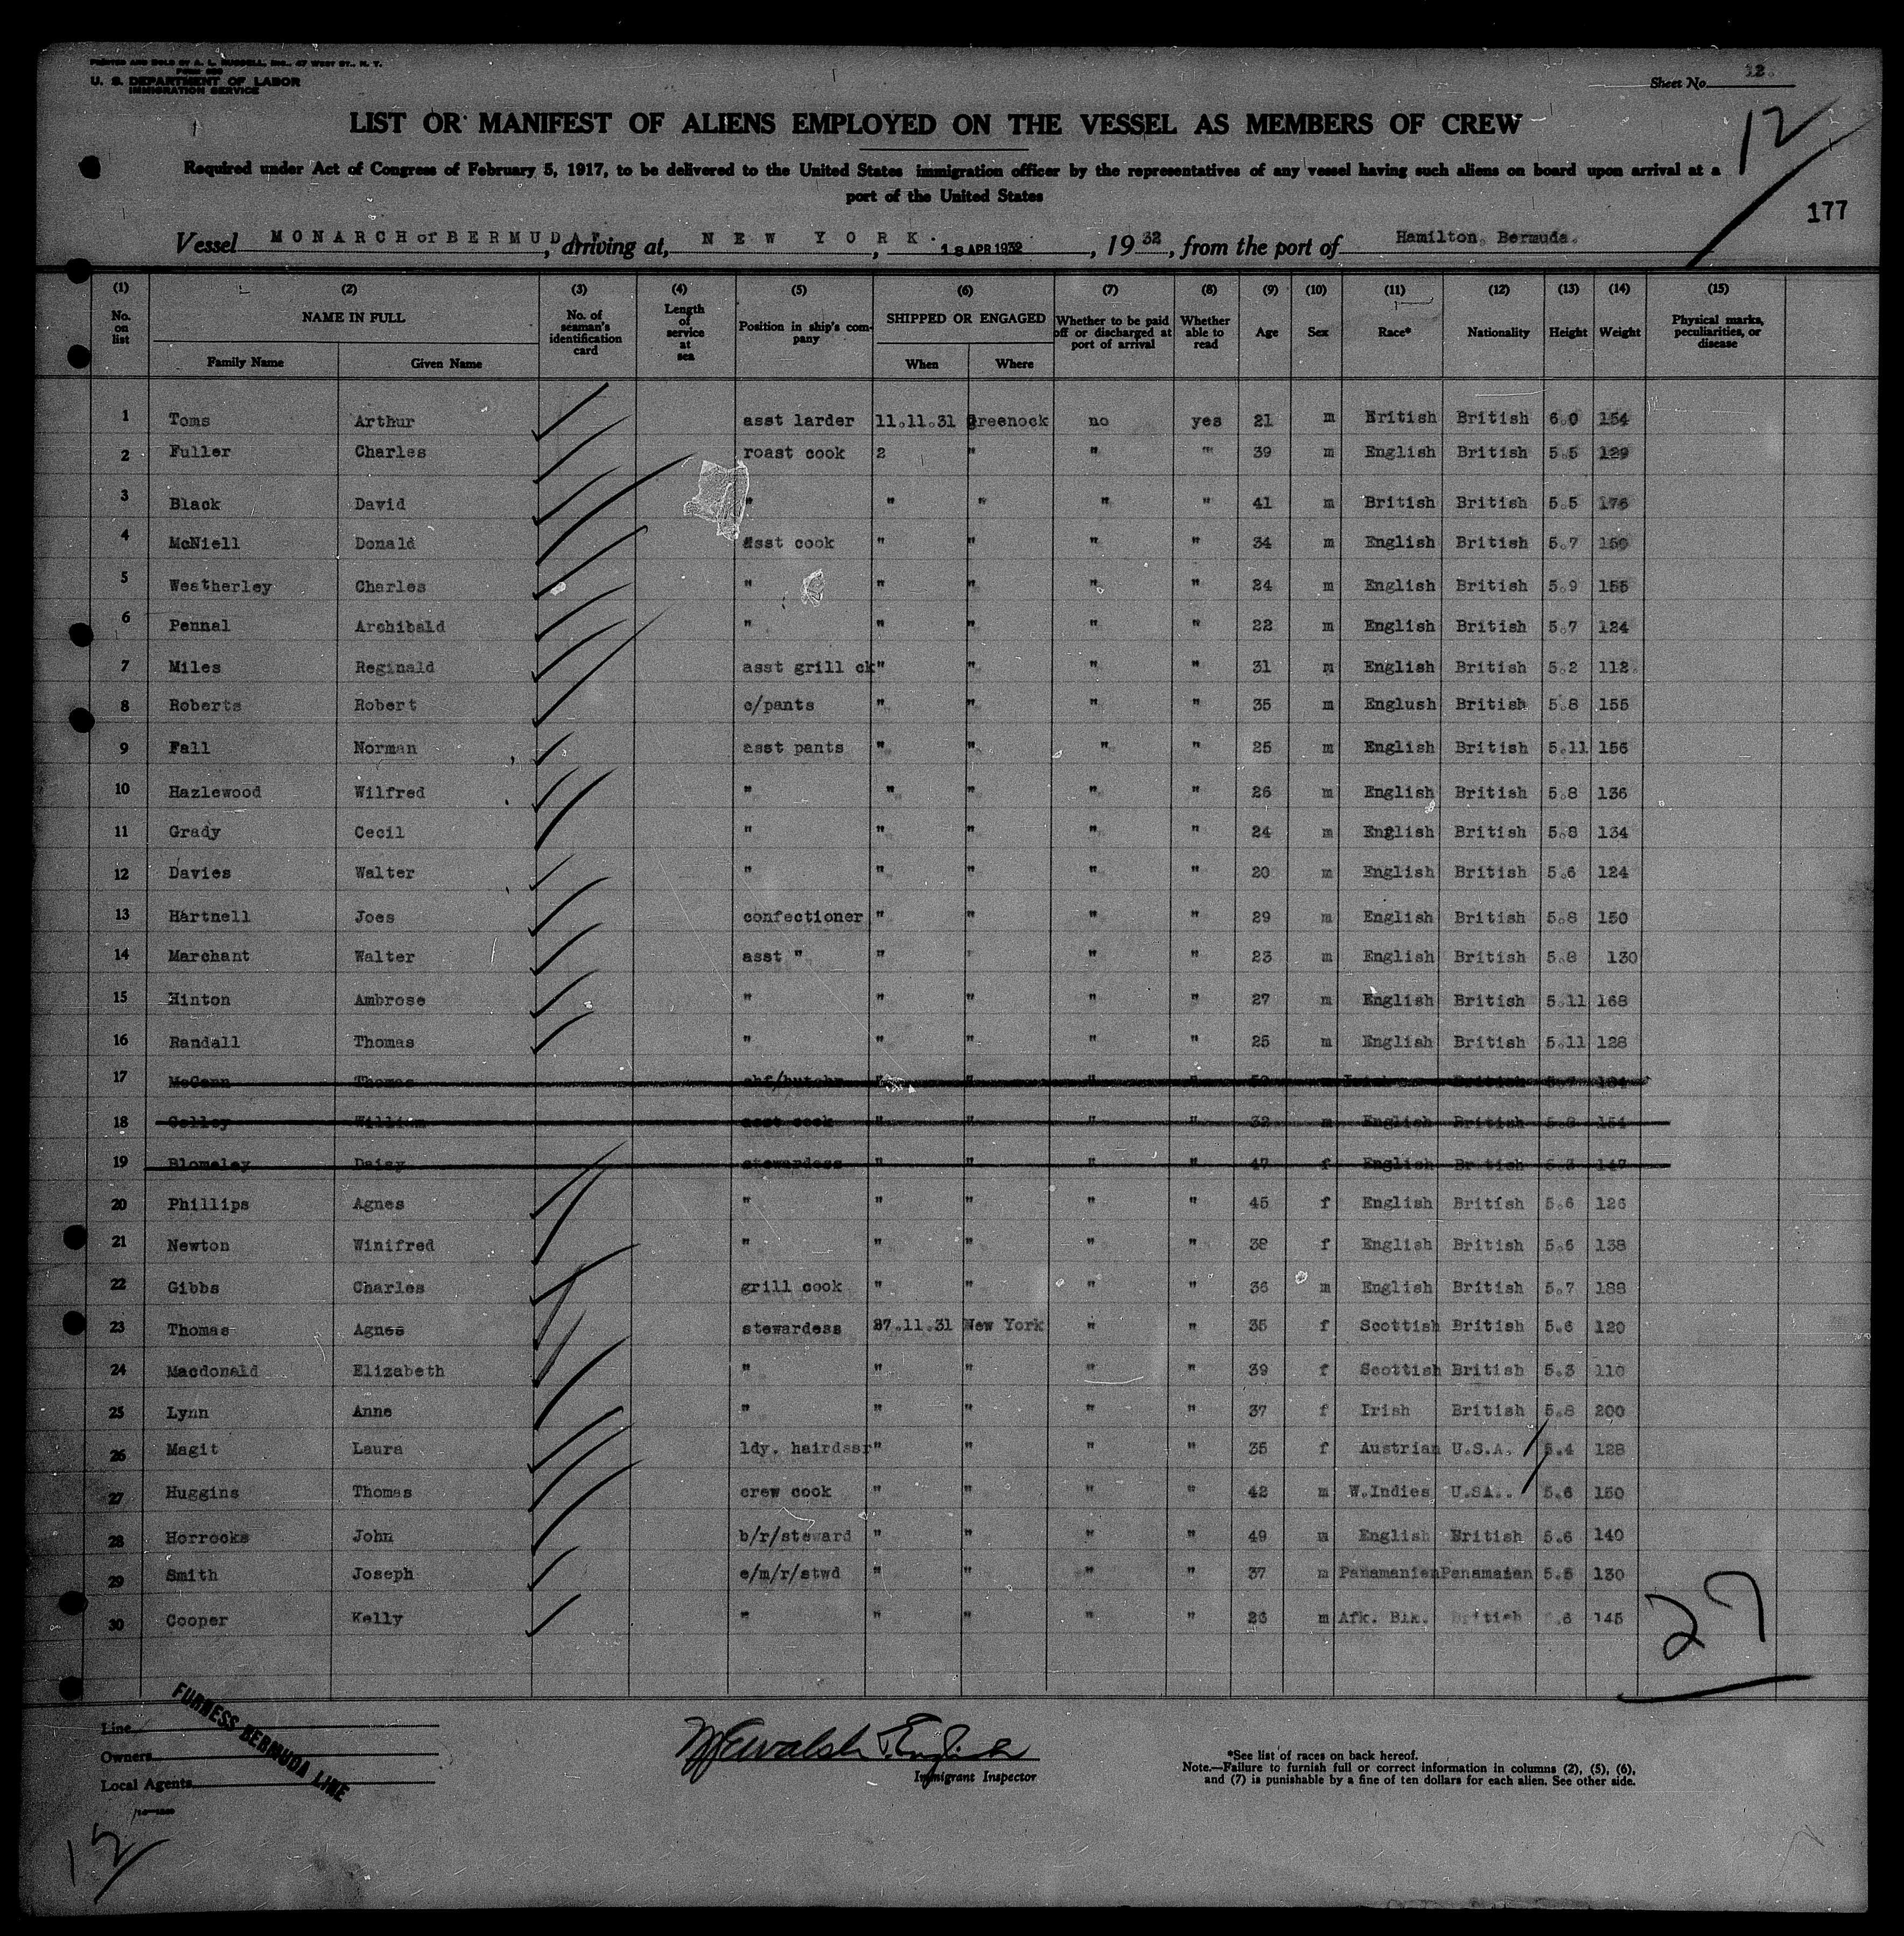 PRINTED AND SOLD BY A. L. RUSSELL, INC., 47 WEST ST., N. Y.
U. S. DEPARTMENT OF LABOR
IMMIGRATION SERVICE
Sheet No. 12.
LIST OR MANIFEST OF ALIENS EMPLOYED ON THE VESSEL AS MEMBERS OF CREW
12
Required under Act of Congress of February 5, 1917, to be delivered to the United States immigration officer by the representatives of any vessel having such aliens on board upon arrival at a
port of the United States
177
Vessel MONARCH of BERMUDA, arriving at, NEW YORK. , 18 APR 1932, 1932, from the port of Hamilton, Bermuda.
(1) (2) (3) (4) (5) (6) (7) (8) (9) (10) (11) (12) (13) (14) (15)
No. on list NAME IN FULL No. of seaman's identification card Length of service at sea Position in ship's company SHIPPED OR ENGAGED Whether to be paid off or discharged at port of arrival Whether able to read Age Sex Race* Nationality Height Weight Physical marks, peculiarities, or disease
Family Name Given Name When Where
1 Toms Arthur asst larder 11.11.31 Greenock no yes 21 m British British 6.0 154
2 Fuller Charles roast cook 2 " " " 39 m English British 5.5 129
3 Black David " " " " " 41 m British British 5.5 176
4 McNiell Donald asst cook " " " " 34 m English British 5.7 150
5 Weatherley Charles " " " " " 24 m English British 5.9 155
6 Pennal Archibald " " " " " 22 m English British 5.7 124
7 Miles Reginald asst grill ck " " " " 31 m English British 5.2 112
8 Roberts Robert c/pants " " " " 35 m Englush British 5.8 155
9 Fall Norman asst pants " " " " 25 m English British 5.11 156
10 Hazlewood Wilfred " " " " " 26 m English British 5.8 136
11 Grady Cecil " " " " " 24 m English British 5.8 134
12 Davies Walter " " " " " 20 m English British 5.6 124
13 Hartnell Joes confectioner " " " " 29 m English British 5.8 150
14 Marchant Walter asst " " " " " 23 m English British 5.8 130
15 Hinton Ambrose " " " " " 27 m English British 5.11 168
16 Randall Thomas " " " " " 25 m English British 5.11 128
17 McCann Thomas " " " " British
18 Colley William asst cook " " " " 32 m English British 5.8 154
19 Blomeley Daisy stewardess " " " " 47 f English British 5.3 147
20 Phillips Agnes " " " " " 45 f English British 5.6 126
21 Newton Winifred " " " " " 38 f English British 5.6 138
22 Gibbs Charles grill cook " " " " 36 m English British 5.7 188
23 Thomas Agnes stewardess 27.11.31 New York " " 35 f Scottish British 5.6 120
24 Macdonald Elizabeth " " " " " 39 f Scottish British 5.3 110
25 Lynn Anne " " " " " 37 f Irish British 5.8 200
26 Magit Laura ldy. hairdssr " " " " 35 f Austrian U.S.A. 5.4 128
27 Huggins Thomas crew cook " " " " 42 m W.Indies U.SA.. 5.6 150
28 Horrocks John b/r/steward " " " " 49 m English British 5.6 140
29 Smith Joseph e/m/r/stwd " " " " 37 m Panamanian Panamaian 5.5 130
30 Cooper Kelly " " " " " 26 m Afk. Blk. British .6 145
27
Line
Owners
Local Agents
FURNESS BERMUDA LINE
Immigrant Inspector
*See list of races on back hereof.
Note.—Failure to furnish full or correct information in columns (2), (5), (6),
and (7) is punishable by a fine of ten dollars for each alien. See other side.
12